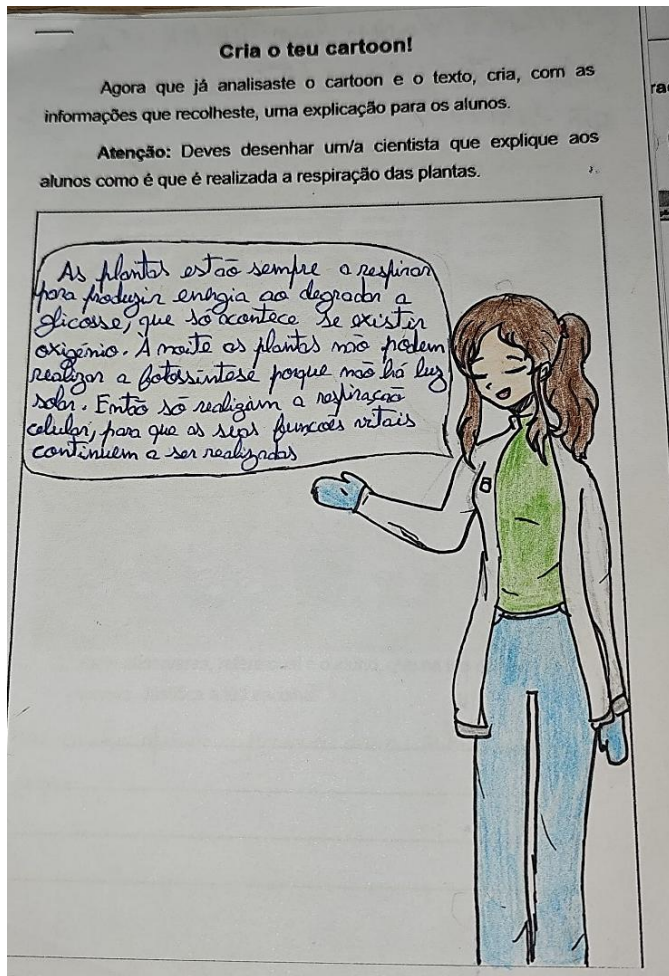 Cria o teu cartoon!
Agora que já analisaste o cartoon e o texto, cria, com as
informações que recolheste, uma explicação para os alunos.
Atenção: Deves desenhar um/a cientista que explique aos
alunos como é que é realizada a respiração das plantas.
As plantas estão sempre a respirar
para produzir energia ao degradar a
glicosse, que só acontece se existir
oxigénio. À noite as plantas não podem
realizar a fotossíntese porque não há luz
solar. Então só realizam a respiração
celular, para que as suas funções vitais
continuem a ser realizadas